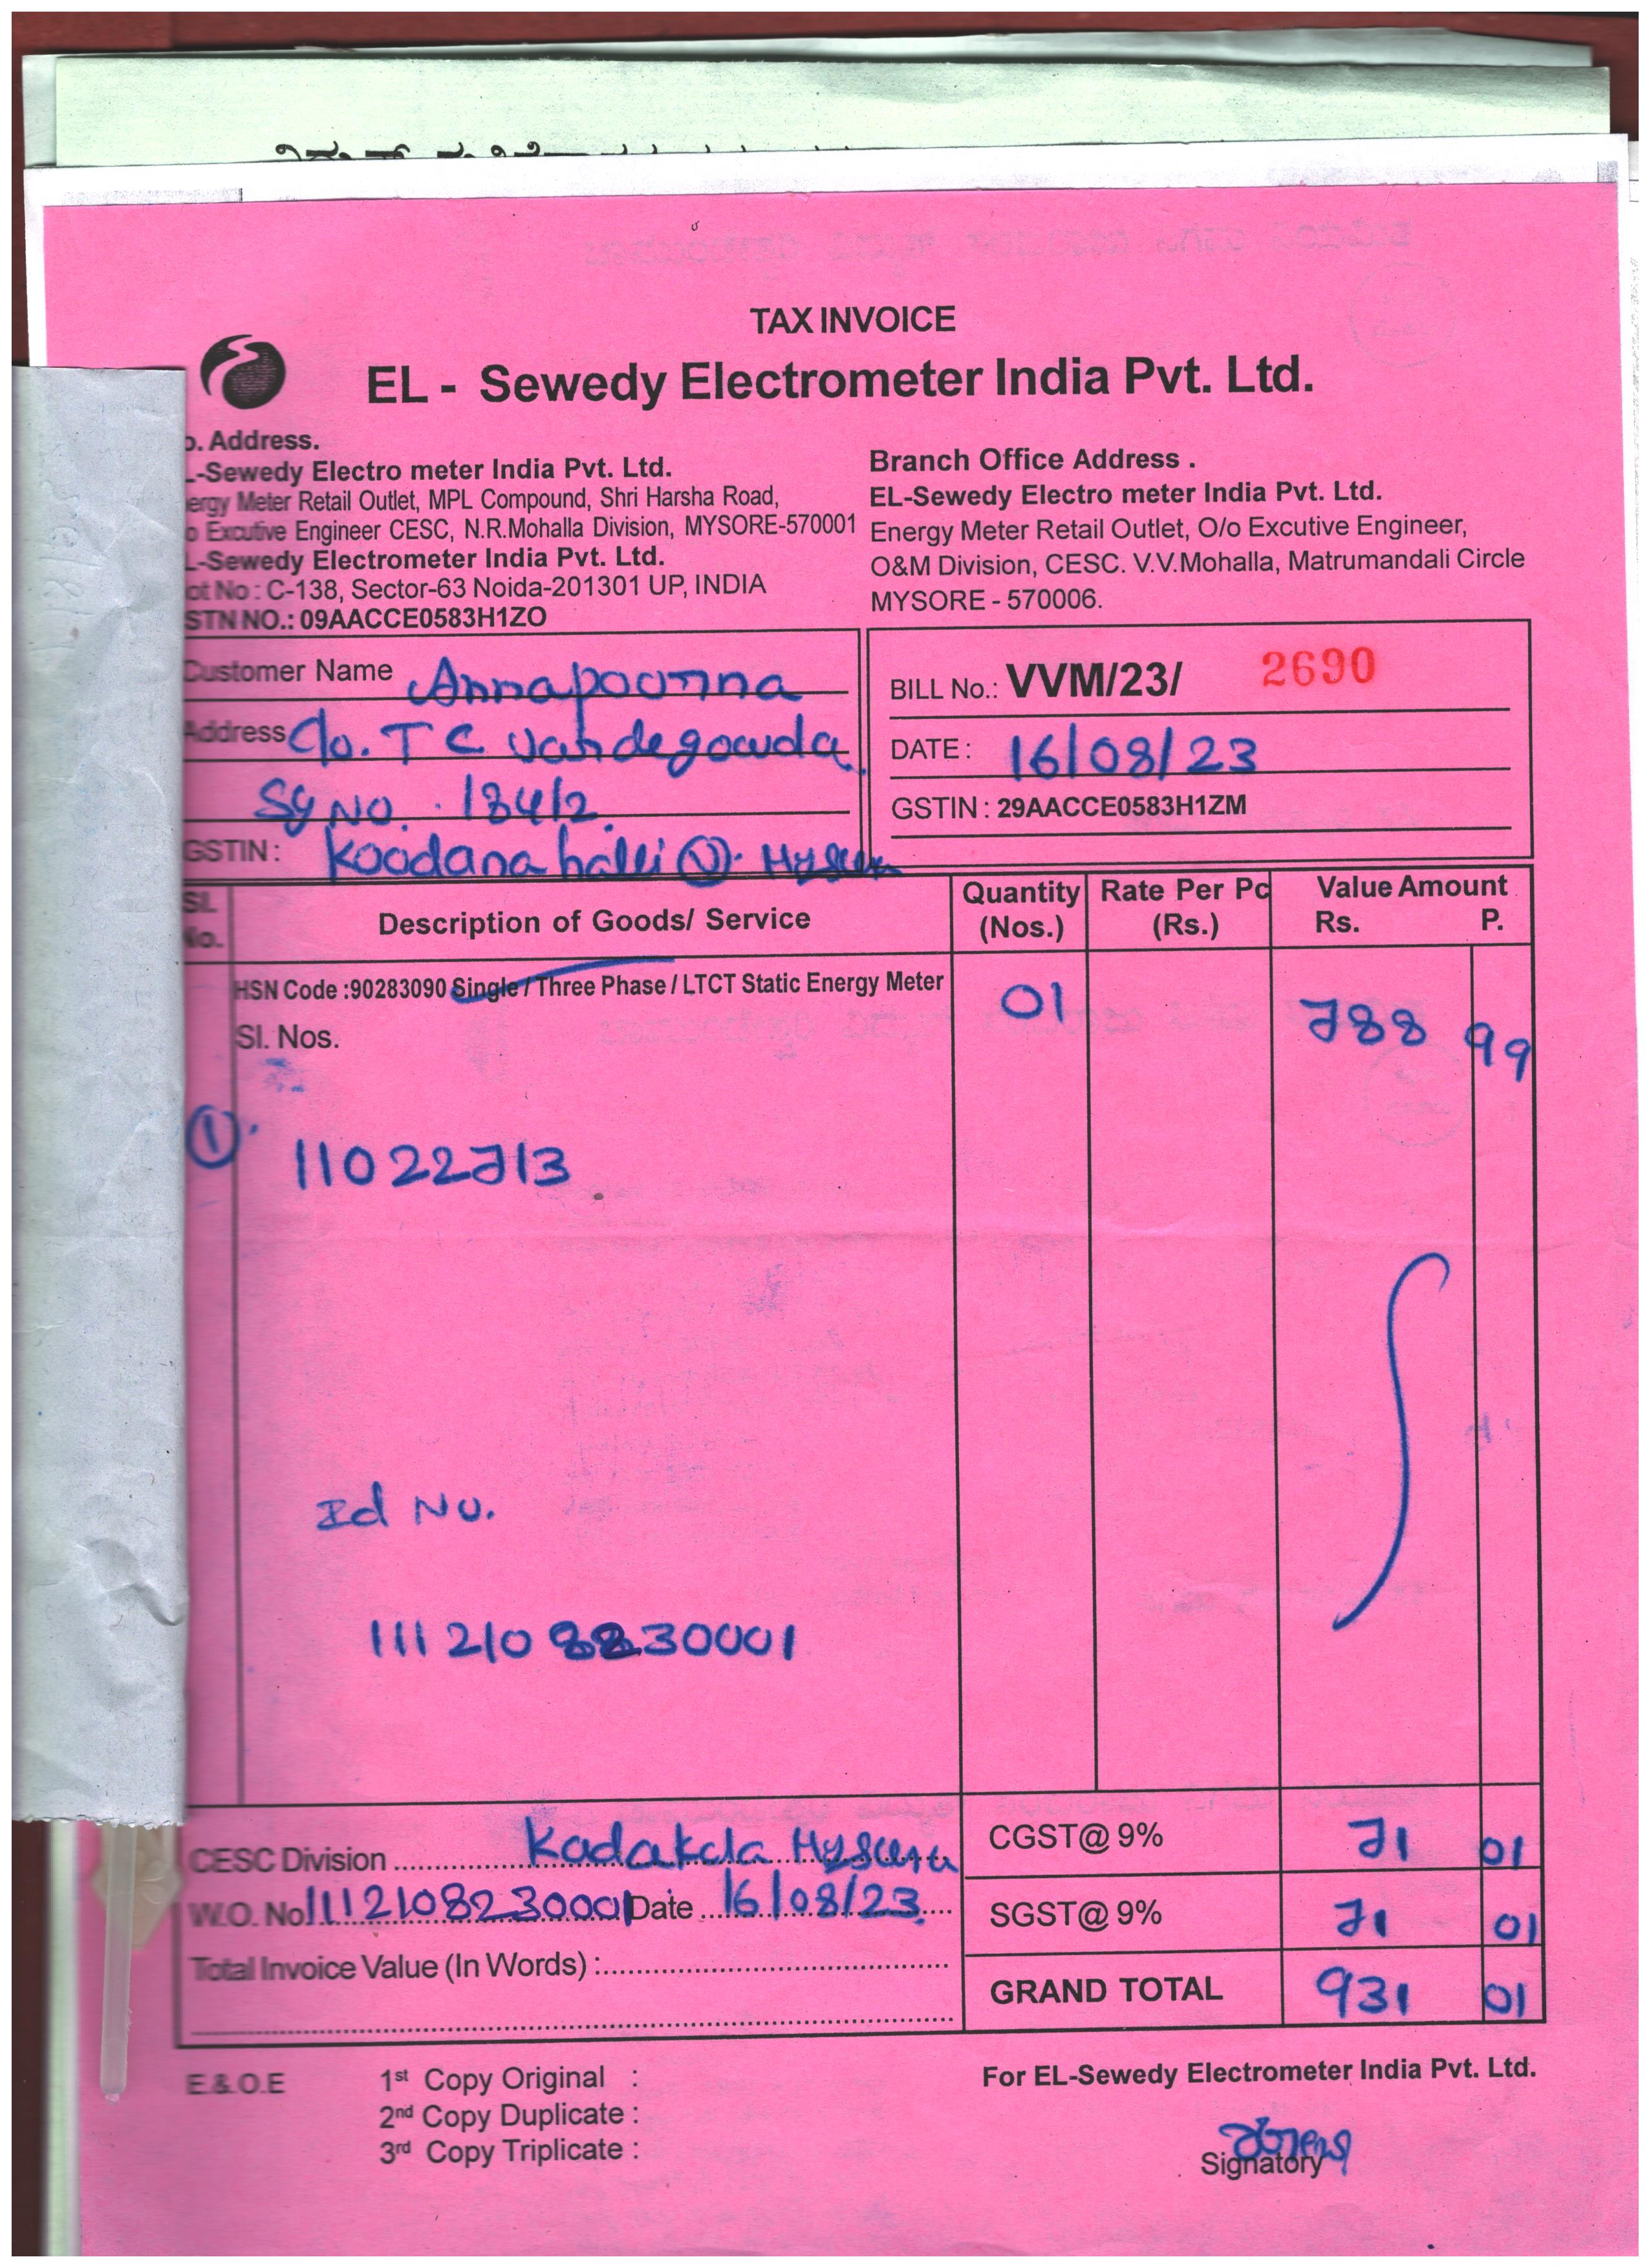 TAX INVOICE
EL - Sewedy Electrometer India Pvt. Ltd.
o. Address.
L-Sewedy Electro meter India Pvt. Ltd.
ergy Meter Retail Outlet, MPL Compound, Shri Harsha Road,
o Excutive Engineer CESC, N.R.Mohalla Division, MYSORE-570001
L-Sewedy Electrometer India Pvt. Ltd.
ot No : C-138, Sector-63 Noida-201301 UP, INDIA
STN NO.: 09AACCE0583H1ZO
Branch Office Address .
EL-Sewedy Electro meter India Pvt. Ltd.
Energy Meter Retail Outlet, O/o Excutive Engineer,
O&M Division, CESC. V.V.Mohalla, Matrumandali Circle
MYSORE - 570006.
Customer Name Annapoorna
Address C/o. T C
Sy No. 134/2.
GSTIN : Koodanahalli (V).
BILL No.: VVM/23/ 2690
DATE : 16/08/23
GSTIN : 29AACCE0583H1ZM
Sl. No. Description of Goods/ Service Quantity (Nos.) Rate Per Pc (Rs.) Value Amount Rs. P.
HSN Code :90283090 Single / Three Phase / LTCT Static Energy Meter 01 788 99
Sl. Nos.
1. 11022713
Id No.
CESC Division Kadakola
W.O. No 1112108230001 Date 16/08/23
Total Invoice Value (In Words) :
CGST@ 9% 71 01
SGST@ 9% 71 01
GRAND TOTAL 931 01
E.& O.E
1st Copy Original :
2nd Copy Duplicate :
3rd Copy Triplicate :
For EL-Sewedy Electrometer India Pvt. Ltd.
Signatory